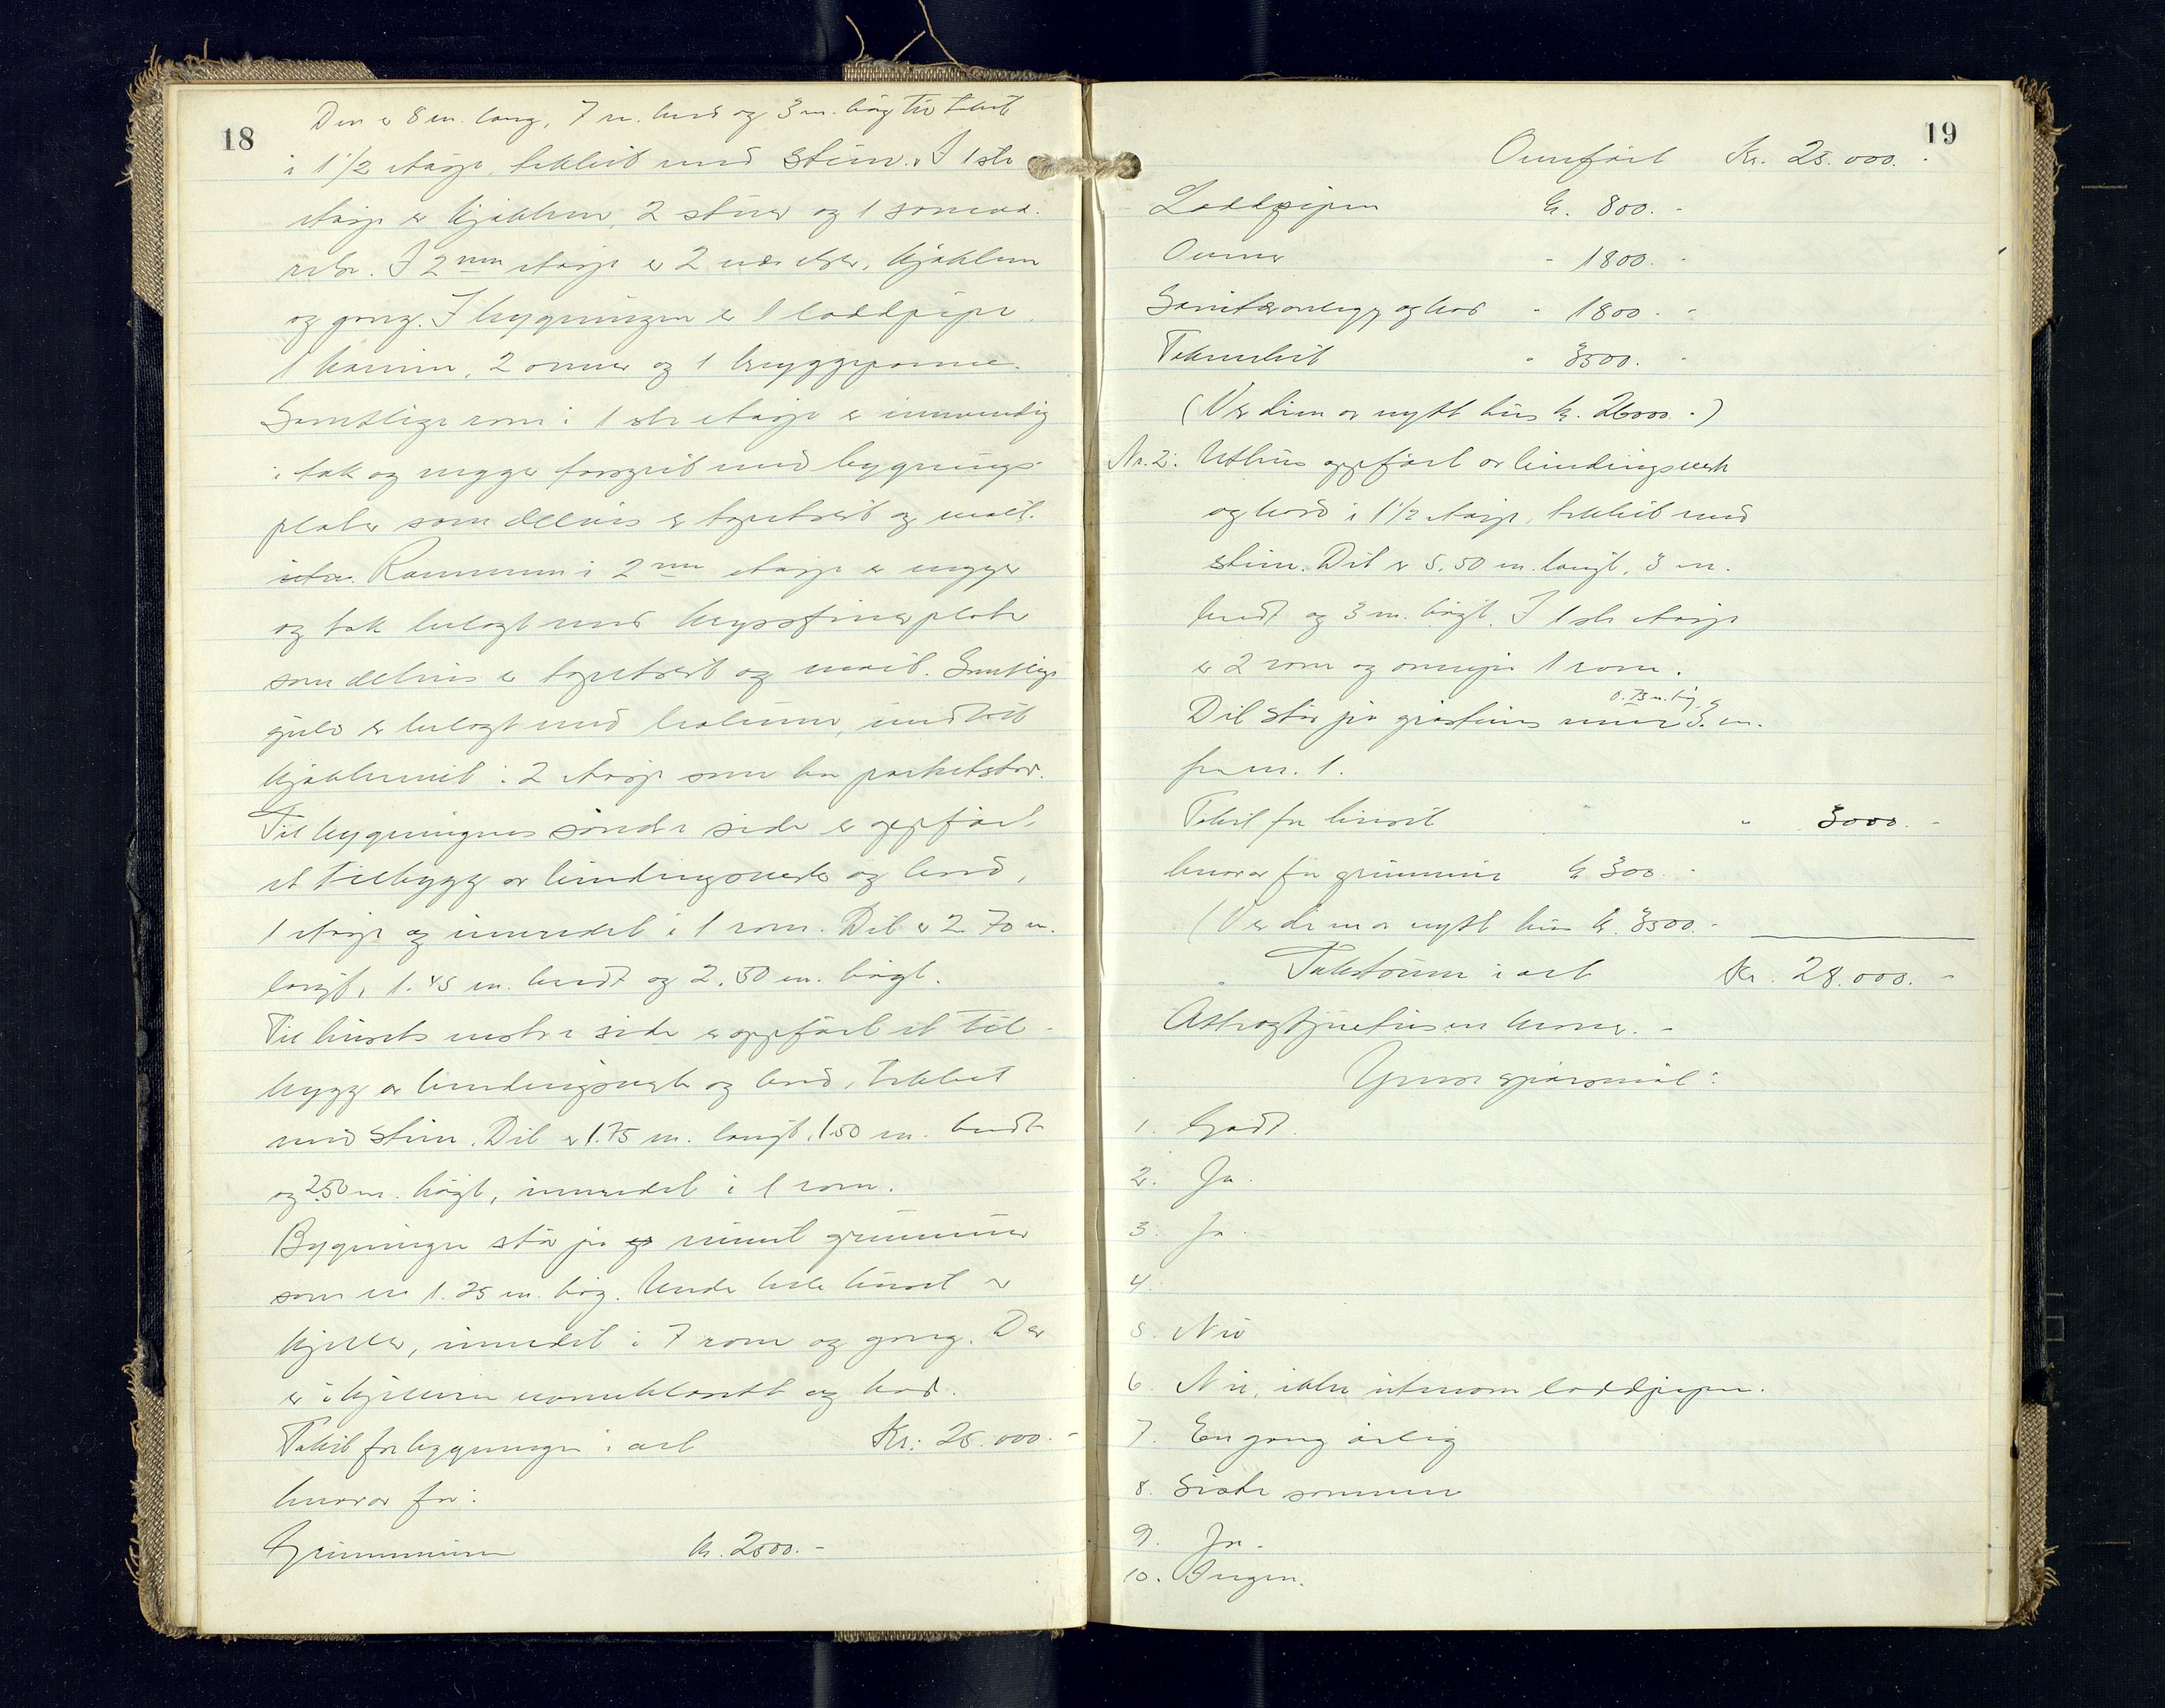 18
Den er 8 m. lang, 7 m. bred og 3 m. høg til taket
i 1 1/2 etasje, tekket med sten. I 1ste
etasje er kjøkken, 2 stuer og 1
I 2nen etasje er 2 kjøkken
og gang. I bygningen er 1 loddpipe
1 kamin, 2 omner og 1 bryggepanne.
Samtlige rom i 1ste etasje er innvendig
i tak og vegger forsynt med bygnings-
plater som delvis er tapetsert og malt.
Rommene i 2nen etasje er vegger
og tak belagt med kryssfinerplater
som delvis er tapetsert og malt. Samtlige
gulv er belagt med linoleum, unntatt
kjøkkenet i 2 etasje som har parketstav.
Til bygningens søndre side er oppført
et tilbygg av bindingsverk og bord,
1 etasje og innredet i 1 rom. Det er 2.70 m.
langt, 1.45 m. bredt og 2.50 m. høgt.
Til husets vestre side er oppført et til-
bygg av bindingsverk og bord, tekket
med sten. Det er 1.75 m. langt, 1.50 m. bredt
og 2.50 m. høgt, innredet i 1 rom.
Bygningen står på muret grunnmur
som er 1.25 m. høg. Under hele huset er
kjeller, innredet i 7 rom og gang. Der
er i kjelleren vannklosett og bad.
Takst for bygningen i alt Kr. 25.000.-
hvorav for:
Grunnmuren kr. 2500.-
19
Overført Kr. 25.000.-
Loddpipen kr. 800.-
Omner " 1800.-
Sanitæranlegg og bad " 1800.-
Takverket " 3500.-
(Verdien av nytt hus kr. 26000.-)
Nr. 2: Uthus oppført av bindingsverk
og bord i 1 1/2 etasje, tekket med
sten. Det er 5.50 m. langt, 3 m.
bredt og 3 m. høgt. I 1ste etasje
er 2 rom og ovenpå 1 rom.
0.75 m. høg, og
Det står på gråstens mur 3. m.
fra nr. 1.
Takst for huset " 3000.-
hvorav for grunnmur kr 300.-
(Verdien av nytt hus kr. 3500.-
Takstsum i alt Kr. 28.000.-
Åtteogtjuetusen kroner.-
Ymse spørsmål:
1. Godt.
2. Ja.
3. Ja.
4.
5. Nei
6. Nei, ikke utenom loddpipen.
7. En gang årlig
8. Siste sommer
9. Ja.
10. Ingen.